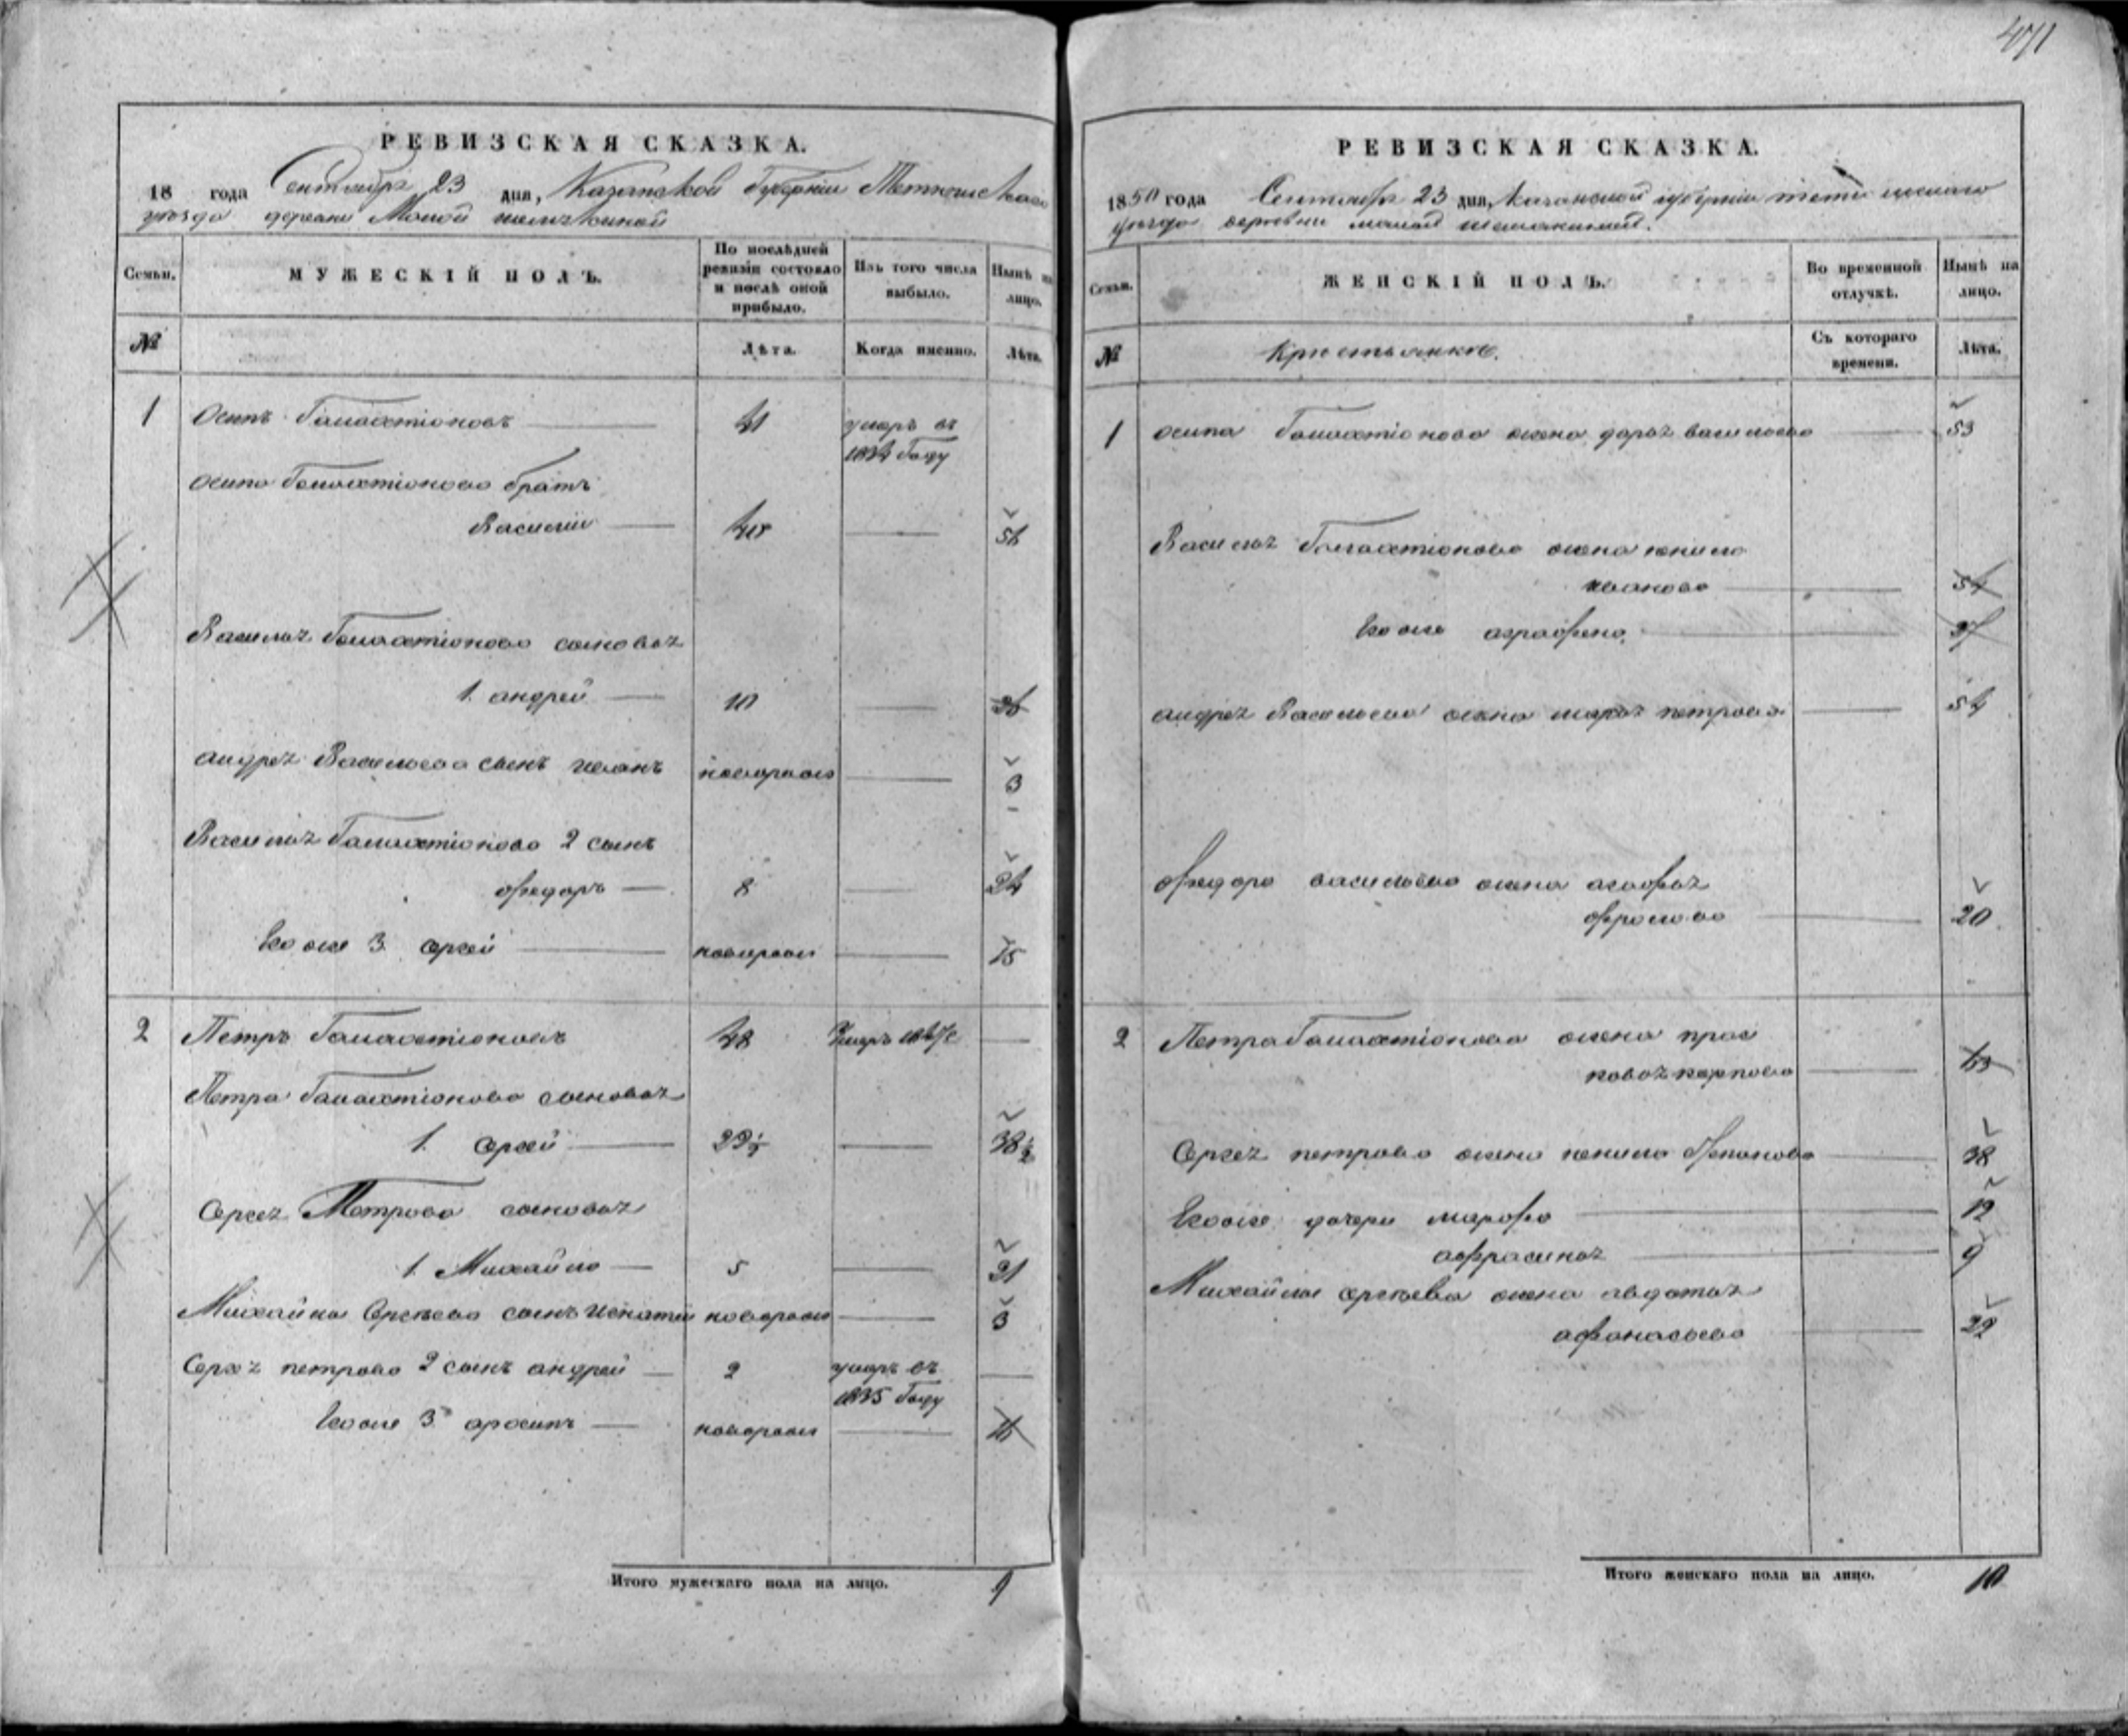 471
РЕВИЗСКАЯ СКАЗКА.
18 года Сентября 23 дня, Казанской Губернии Тетюшскаго
уезда деревни Малой
Семьи. МУЖЕСКІЙ ПОЛЪ. По послѣдней ревизіи состояло и послѣ оной прибыло. Изъ того числа выбыло. Нынѣ на лицо.
№ Лѣта. Когда именно. Лѣта.
1 Осипъ Галахтіоновъ 41 умеръ въ
1834 Году
Осипа Галахтіонова братъ
Василій 40 56
Василья Галахтіонова сыновья
1. андрей 10 26
андрея Васильева сынъ иванъ новорож 3
Василья Галахтіонова 2 сынъ
Федоръ 8 24
Ево же 3. Сергей новорож 15
2 Петръ Галахтіоновъ 48 Умеръ
Петра Галахтіонова сыновья
1. Сергей 22½ 38½
Сергея Петрова сыновья
1. Михайло 5 21
Михайла Сергеева сынъ игнатий новорож 3
Сергея петрова 2 сынъ андрей 2 умеръ въ
1835 Году
Ево же 3 новорож
Итого мужескаго пола на лицо. 9
РЕВИЗСКАЯ СКАЗКА.
1850 года Сентября 23 дня, Казанской губернии тетюшскаго
уезда деревни малой
Семьи. ЖЕНСКІЙ ПОЛЪ. Во временной отлучкѣ. Нынѣ на лицо.
№ Крестьянке. Съ котораго времени. Лѣта.
1 осипа Галахтіонова жена дарья васильева 53
Василья Галахтіонова жена ненила
иванова 54
Ево же аграфена 27
андрея Васильева жена марья петрова 34
Федора васильева жена агафья
фролова 20
2 Петра Галахтіонова жена прас
ковья карпова 63
Сергея петрова жена ненила 38
Ево же дочери марфа 12
афрасинья 9
Михайлы сергеева жена авдотья
афонасьева 22
Итого женскаго пола на лицо. 10